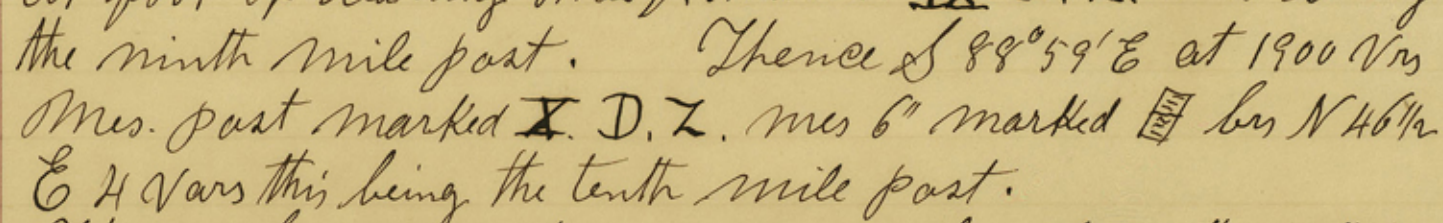 the ninth mile post. Thence S 88°59' E at 1900 Vrs
Mes. post marked X. D. Z. mes 6" marked brs N 46½
E 4 Vars this being the tenth mile post.